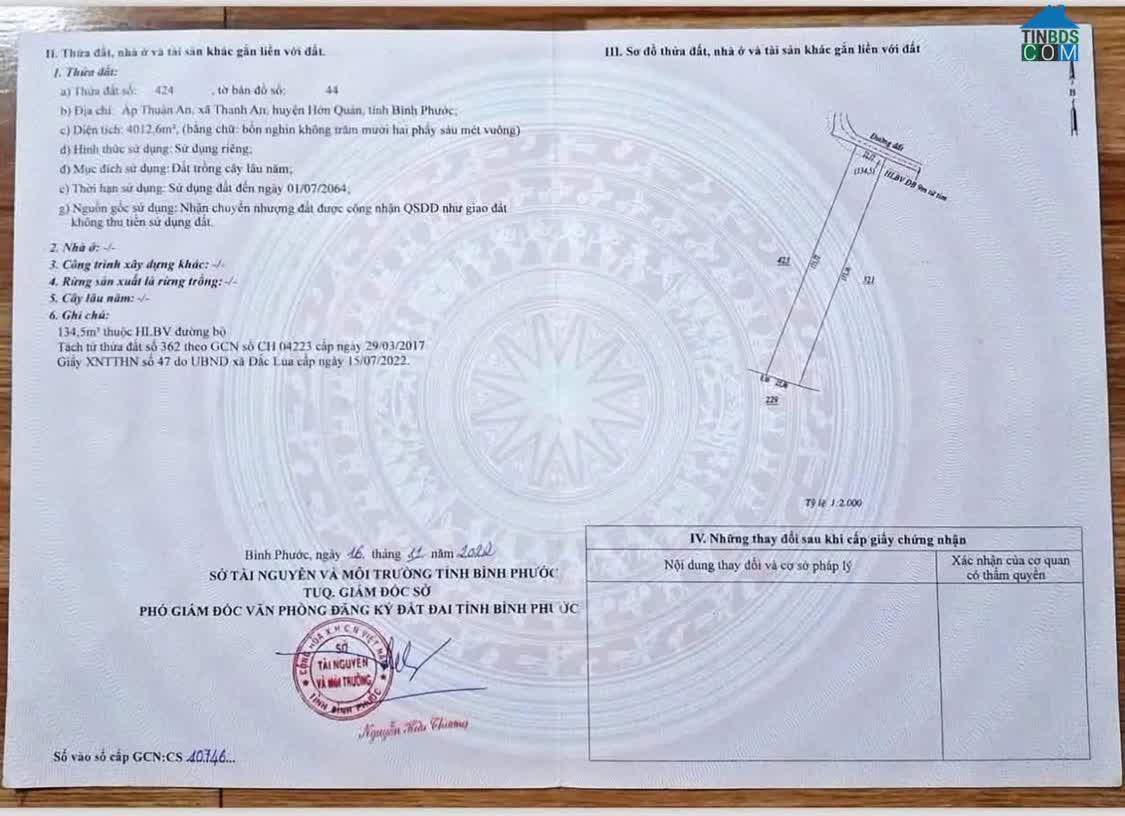 II. Thửa đất, nhà ở và tài sản khác gắn liền với đất.
1. Thửa đất:
a) Thửa đất số: 424 , tờ bản đồ số: 44
b) Địa chỉ: Ấp Thuận An, xã Thanh An, huyện Hớn Quản, tỉnh Bình Phước;
c) Diện tích: 4012,6m², (bằng chữ: bốn nghìn không trăm mười hai phẩy sáu mét vuông)
d) Hình thức sử dụng: Sử dụng riêng;
đ) Mục đích sử dụng: Đất trồng cây lâu năm;
e) Thời hạn sử dụng: Sử dụng đất đến ngày 01/07/2064;
g) Nguồn gốc sử dụng: Nhận chuyển nhượng đất được công nhận QSDĐ như giao đất
không thu tiền sử dụng đất.
2. Nhà ở: -/-
3. Công trình xây dựng khác: -/-
4. Rừng sản xuất là rừng trồng: -/-
5. Cây lâu năm: -/-
6. Ghi chú:
134,5m² thuộc HLBV đường bộ
Tách từ thửa đất số 362 theo GCN số CH 04223 cấp ngày 29/03/2017
Giấy XNTTHN số 47 do UBND xã Đắc Lua cấp ngày 15/07/2022.
Bình Phước, ngày 16 tháng 11 năm 2022
SỞ TÀI NGUYÊN VÀ MÔI TRƯỜNG TỈNH BÌNH PHƯỚC
TUQ. GIÁM ĐỐC SỞ
PHÓ GIÁM ĐỐC VĂN PHÒNG ĐĂNG KÝ ĐẤT ĐAI TỈNH BÌNH PHƯỚC
CỘNG HÒA X.H.C.N VIỆT NAM
SỞ
TÀI NGUYÊN
VÀ MÔI TRƯỜNG
TỈNH BÌNH PHƯỚC
Nguyễn Hữu
Số vào sổ cấp GCN:CS 10746...
III. Sơ đồ thửa đất, nhà ở và tài sản khác gắn liền với đất
TINBDS
COM
B
Đường đất
(134,5)
HLBV ĐB 9m từ tim
423
321
229
Tỷ lệ 1:2.000
IV. Những thay đổi sau khi cấp giấy chứng nhận
Nội dung thay đổi và cơ sở pháp lý
Xác nhận của cơ quan
có thẩm quyền